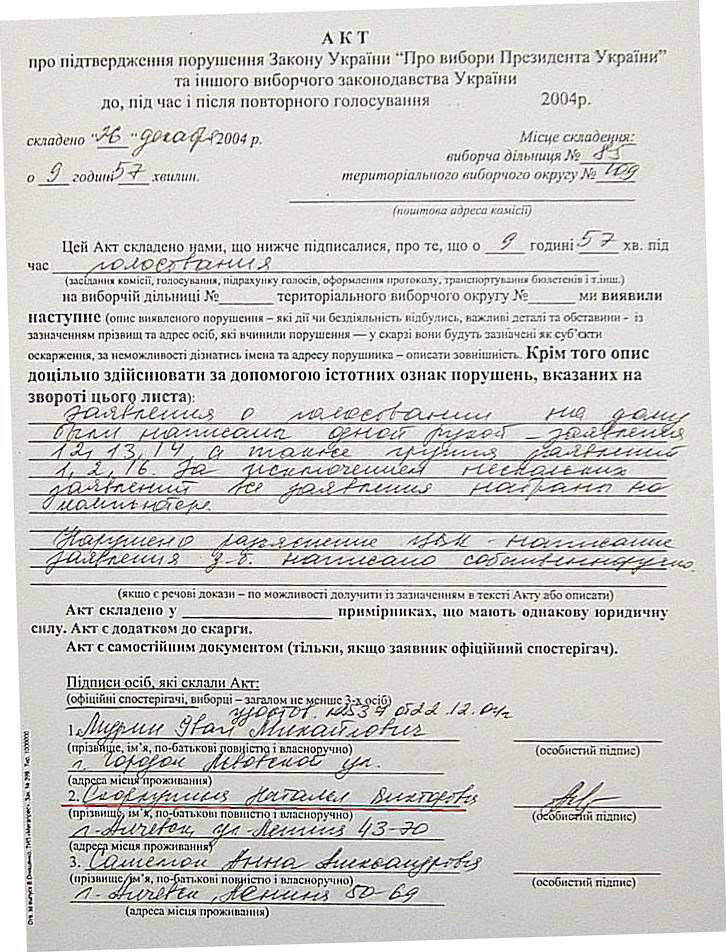 АКТ
про підтвердження порушення Закону України “Про вибори Президента України”
та іншого виборчого законодавства України
до, під час і після повторного голосування 2004р.
складено "26" декаб 2004 р.
Місце складення:
виборча дільниця № 85
о 9 годині 57 хвилин.
територіального виборчого округу № 109
(поштова адреса комісії)
Цей Акт складено нами, що нижче підписалися, про те, що о 9 годині 57 хв. під
час голосования
(засідання комісії, голосування, підрахунку голосів, оформлення протоколу, транспортування бюлетенів і т.інш.)
на виборчій дільниці №______ територіального виборчого округу №______ ми виявили
наступне (опис виявленого порушення – які дії чи бездіяльність відбулись, важливі деталі та обставини - із
зазначенням прізвищ та адрес осіб, які вчинили порушення — у скарзі вони будуть зазначені як суб’єкти
оскарження, за неможливості дізнатись імена та адресу порушника – описати зовнішність. Крім того опис
доцільно здійснювати за допомогою істотних ознак порушень, вказаних на
звороті цього листа):
заявления о голосовании на дому
были написаны одной рукой – заявления
12, 13, 14 а также группа заявлений
1, 2, 16. За исключением нескольких
заявлений все заявления набраны на
компьютере.
Нарушено разъяснение ЦВК - написание
заявления д.б. написано собственноручно.
(якщо є речові докази – по можливості долучити із зазначенням в тексті Акту або описати)
Акт складено у ____________ примірниках, що мають однакову юридичну
силу. Акт є додатком до скарги.
Акт є самостійним документом (тільки, якщо заявник офіційний спостерігач).
Підписи осіб, які склали Акт:
(офіційні спостерігачі, виборці – загалом не менше 3-х осіб)
удостов. №537 от 22.12.04г
1. Иван Михайлович
(прізвище, ім’я, по-батькові повністю і власноручно)
(особистий підпис)
г. Городок Львовской
(адреса місця проживання)
2. Наталья Викторовна
(прізвище, ім’я, по-батькові повністю і власноручно)
(особистий підпис)
г. Алчевск, ул. Ленина 43-70
(адреса місця проживання)
3. Анна Александровна
(прізвище, ім’я, по-батькові повністю і власноручно)
(особистий підпис)
г. Алчевск Ленина 50-69
(адреса місця проживання)